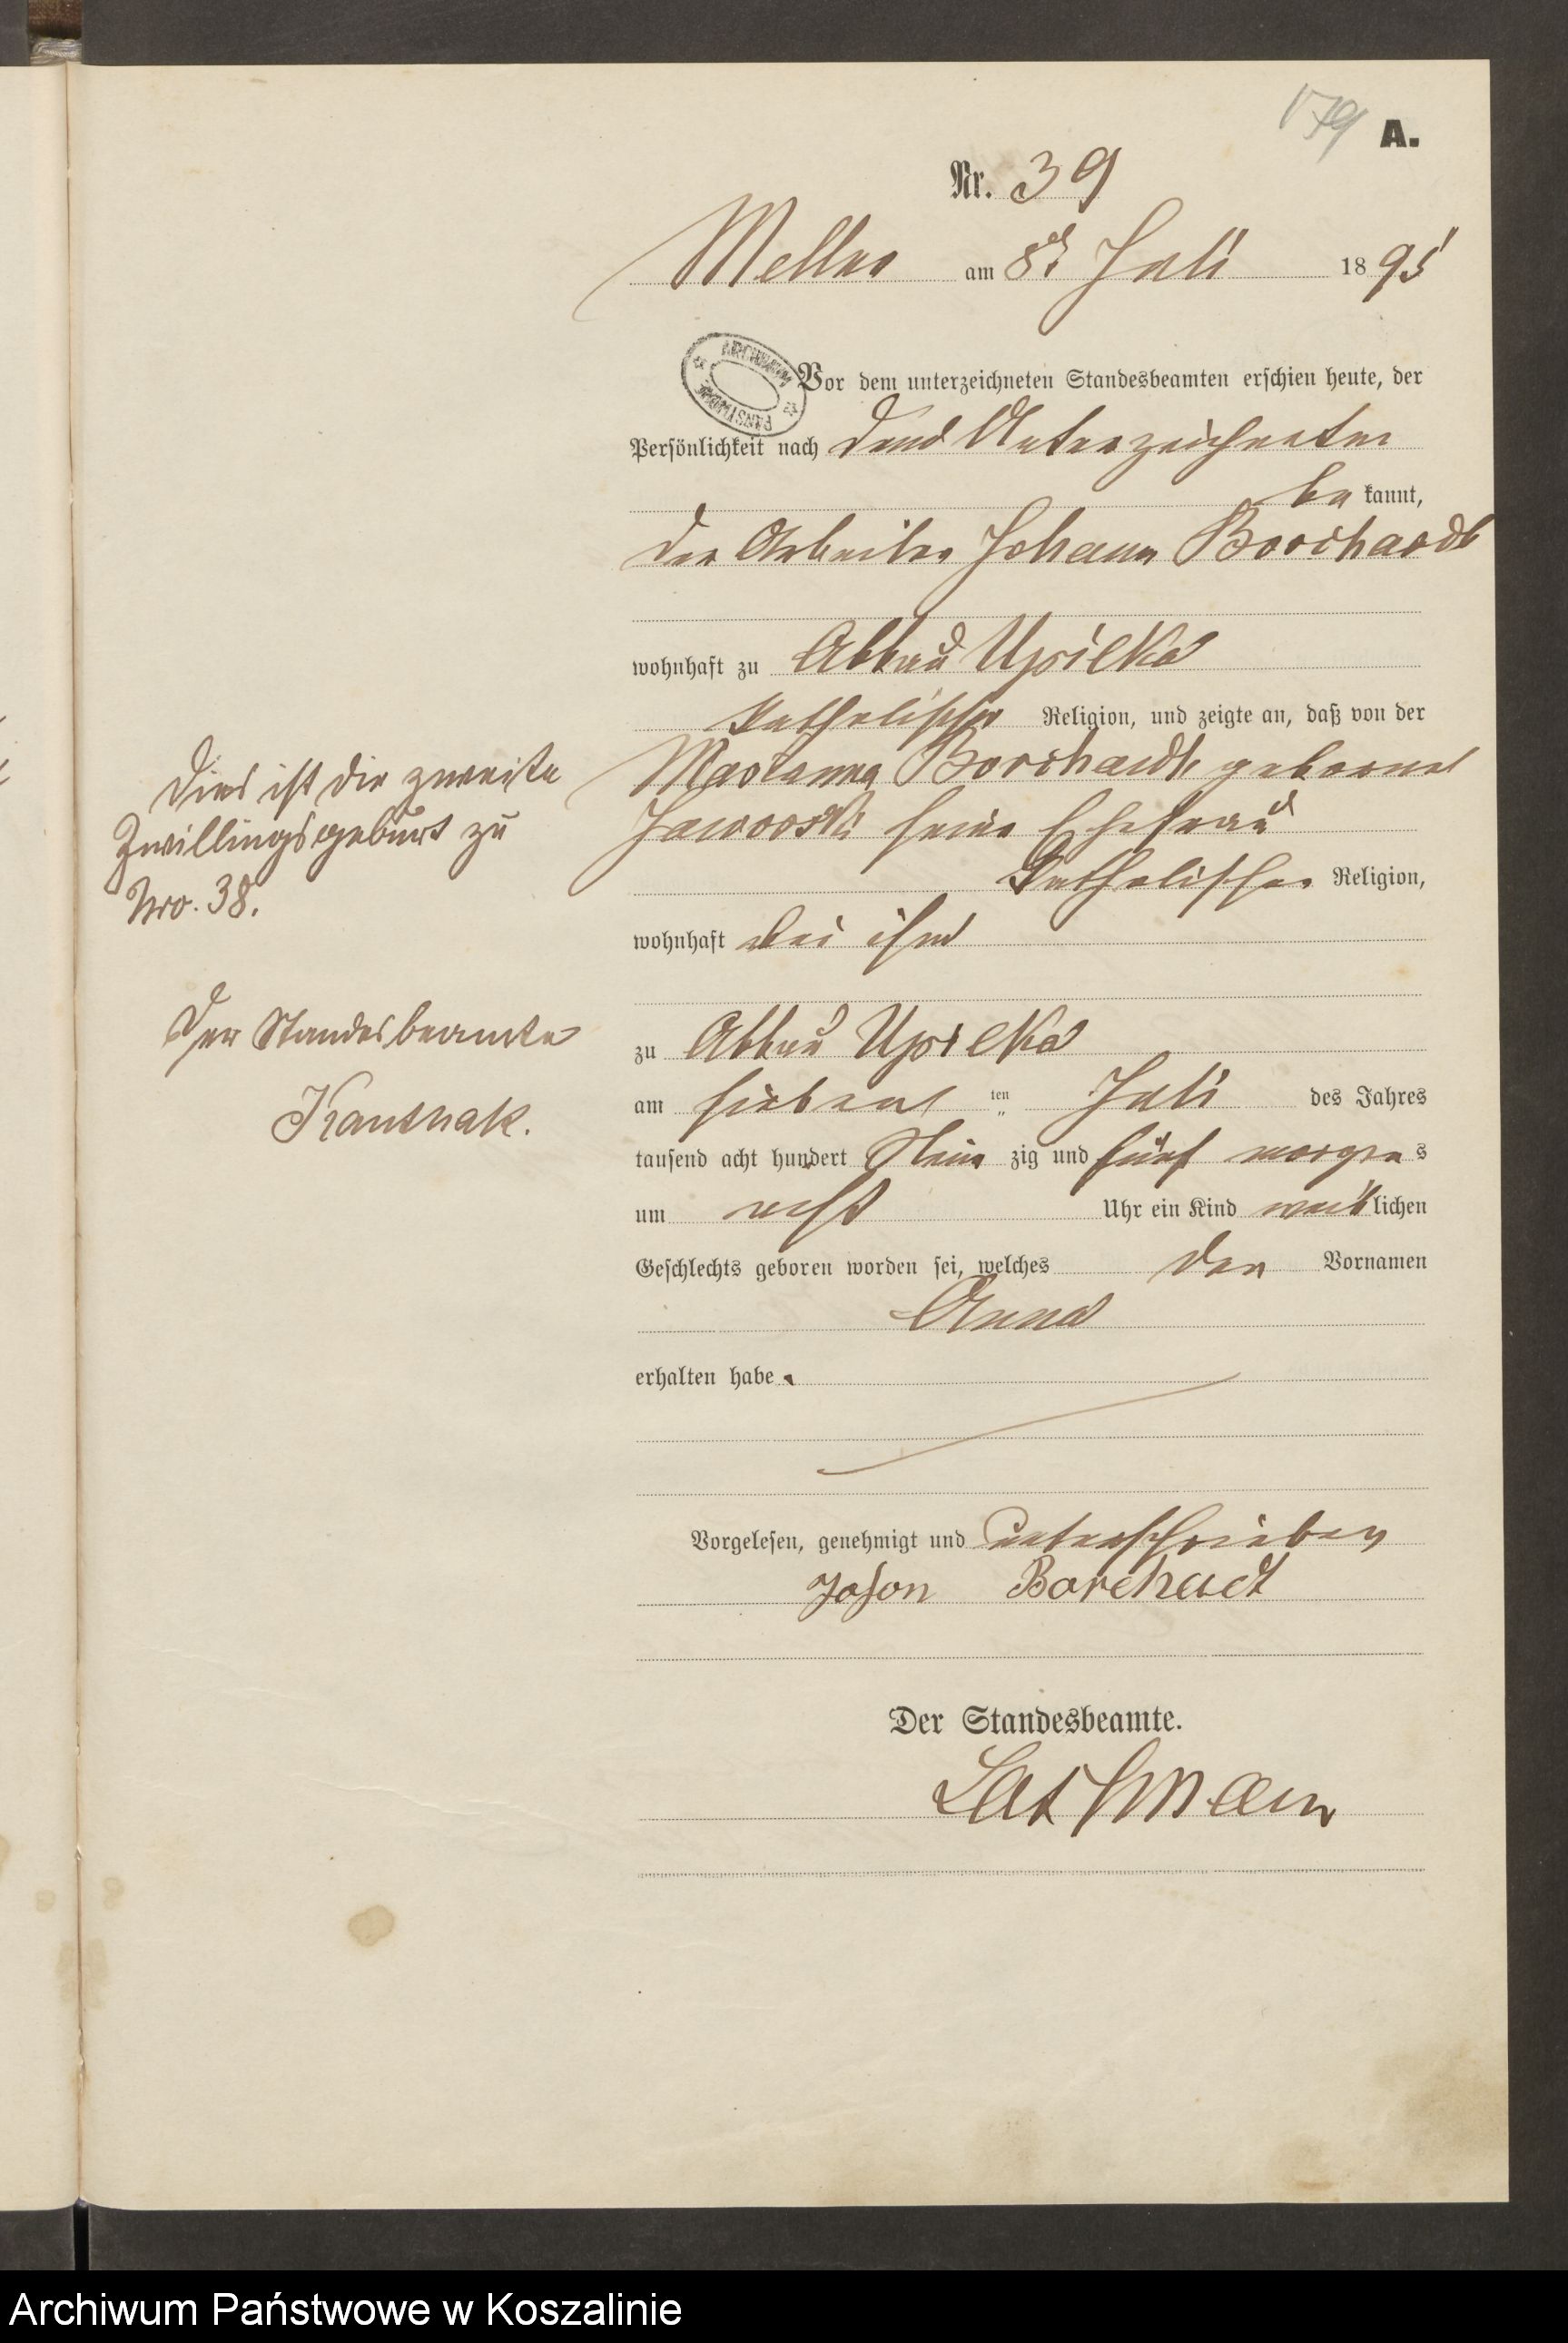 179 A.
Nr. 39
Mellno am 8t Juli 1895
ARCHIWUM PAŃSTWOWE
Vor dem unterzeichneten Standesbeamten erschien heute, der
Persönlichkeit nach dem Unterzeichneten
be kannt,
der Arbeiter Johann Borchardt
wohnhaft zu Abbau Upilka
katholischer Religion, und zeigte an, daß von der
Marianna Borchardt geborene
Jaworski seine Ehefrau
katholischer Religion,
wohnhaft bei ihm
zu Abbau Upilka
am siebent ten Juli des Jahres
tausend acht hundert Neun zig und fünf morgens
um acht Uhr ein Kind weiblichen
Geschlechts geboren worden sei, welches den Vornamen
Anna
erhalten habe.
Vorgelesen, genehmigt und unterschrieben
Johon Borchadt
Der Standesbeamte.
Dies ist die zweite
Zwillingsgeburt zu
Nro. 38.
Der Standesbeamte
Archiwum Państwowe w Koszalinie